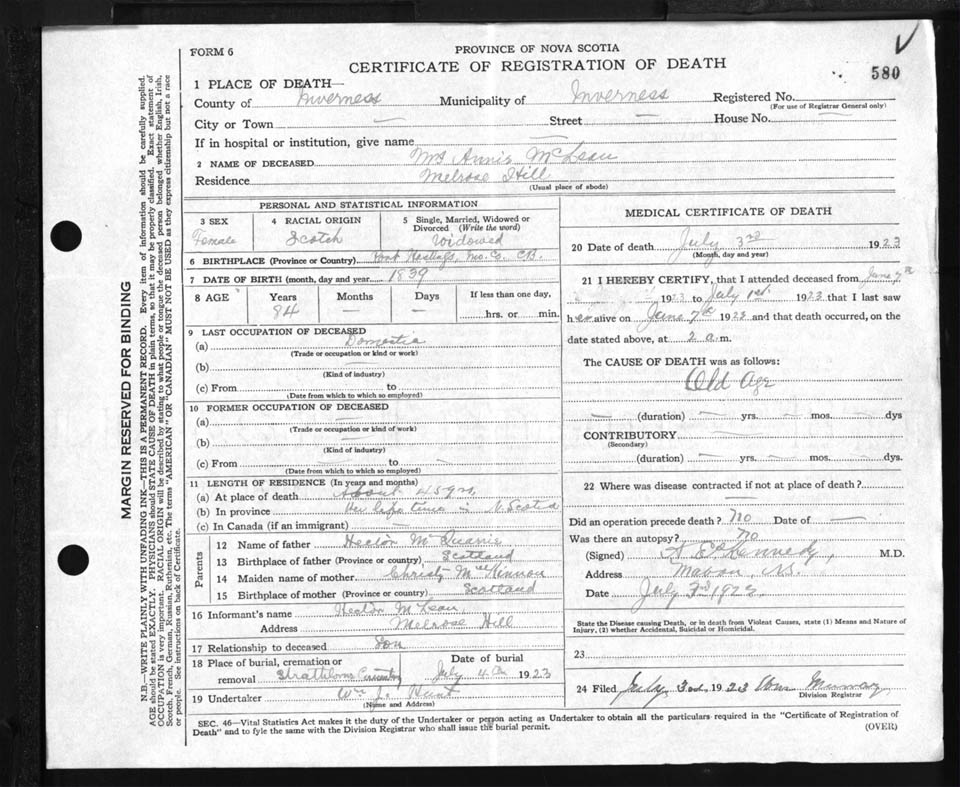 FORM 6
PROVINCE OF NOVA SCOTIA
CERTIFICATE OF REGISTRATION OF DEATH
580
1 PLACE OF DEATH—
County of Inverness Municipality of Inverness Registered No.
(For use of Registrar General only)
City or Town — Street — House No. —
If in hospital or institution, give name —
2 NAME OF DECEASED Mrs Annie McLean
Residence Melrose Hill
(Usual place of abode)
PERSONAL AND STATISTICAL INFORMATION
3 SEX
Female
4 RACIAL ORIGIN
Scotch
5 Single, Married, Widowed or Divorced (Write the word)
Widowed
6 BIRTHPLACE (Province or Country) Port Hastings, C.B.
7 DATE OF BIRTH (month, day and year) 1839
8 AGE Years Months Days If less than one day,
84 — — hrs. or min.
9 LAST OCCUPATION OF DECEASED
(a) Domestic
(Trade or occupation or kind or work)
(b) —
(Kind of industry)
(c) From to
(Date from which to which so employed)
10 FORMER OCCUPATION OF DECEASED
(a) —
(Trade or occupation or kind of work)
(b) —
(Kind of industry)
(c) From — to —
(Date from which to which so employed)
11 LENGTH OF RESIDENCE (In years and months)
(a) At place of death About 45 yrs,
(b) In province Her life time in N. Scotia
(c) In Canada (if an immigrant) —
Parents
12 Name of father Hector McQuarrie
13 Birthplace of father (Province or country) Scotland
14 Maiden name of mother Christy McKinnon
15 Birthplace of mother (Province or country) Scotland
16 Informant's name Hector McLean,
Address Melrose Hill
17 Relationship to deceased Son
18 Place of burial, cremation or removal Strathlorne Cemetery
Date of burial July 4th 1923
19 Undertaker Wm J. Hunt
(Name and Address)
MEDICAL CERTIFICATE OF DEATH
20 Date of death July 3rd 1923
(Month, day and year)
21 I HEREBY CERTIFY, that I attended deceased from June 7th
1923 to July 1st 1923 that I last saw
her alive on June 7th 1923 and that death occurred, on the
date stated above, at 2 a.m.
The CAUSE OF DEATH was as follows:
Old Age
— (duration) — yrs. — mos. — dys
CONTRIBUTORY —
(Secondary)
(duration) — yrs. — mos. — dys.
22 Where was disease contracted if not at place of death?
—
Did an operation precede death? No Date of —
Was there an autopsy? No
(Signed) Kennedy, M.D.
Address Mabou, N.S.
Date July 3rd 1923
State the Disease causing Death, or in death from Violent Causes, state (1) Means and Nature of
Injury, (2) whether Accidental, Suicidal or Homicidal.
23
24 Filed July 3rd 1923 Wm Murray
Division Registrar
SEC. 46—Vital Statistics Act makes it the duty of the Undertaker or person acting as Undertaker to obtain all the particulars required in the "Certificate of Registration of
Death" and to fyle the same with the Division Registrar who shall issue the burial permit.
(OVER)
MARGIN RESERVED FOR BINDING
N.B.—WRITE PLAINLY WITH UNFADING INK—THIS IS A PERMANENT RECORD. Every item of information should be carefully supplied.
AGE should be stated EXACTLY. PHYSICIANS should STATE CAUSE OF DEATH in plain terms, so that it may be properly classified. Exact statement of
OCCUPATION is very important. RACIAL ORIGIN will be described by stating to what people or tongue the deceased person belonged whether English, Irish,
Scotch, French, German, Russian, Ruthenian, etc. The terms "AMERICAN" OR "CANADIAN" MUST NOT BE USED as they express citizenship but not a race
or people. See instructions on back of Certificate.